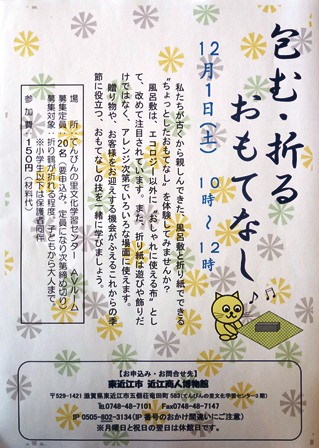 包む・折る
おもてなし
12月1日（土） 10時～12時
私たちが古くから親しんできた、風呂敷と折り紙でできる
“ちょっとしたおもてなし”を体験してみませんか？
風呂敷は、エコロジー以外に「おしゃれに使える布」とし
て、改めて注目されています。また、折り紙は遊びや飾りだ
けではなく、アレンジ次第でいろいろな場面に使えます。
贈り物や、お客様をお迎えする機会がふえるこれからの季
節に役立つ、おもてなしの技を一緒に学びましょう。
場所：てんびんの里文化学習センター AVルーム
募集定員：20名（要申込み、定員になり次第締め切り）
募集対象：折り鶴が折れる程度、子どもから大人まで
※小学生以下は保護者同伴
参加費：150円（材料代）
【お申込み・お問合せ先】
東近江市 近江商人博物館
〒529-1421 滋賀県東近江市五個荘竜田町583（てんびんの里文化学習センター3階）
℡0748-48-7101 Fax0748-48-7147
IP 0505-802-3134（IP番号のおかけ間違いにご注意）
※月曜日と祝日の翌日は休館日。